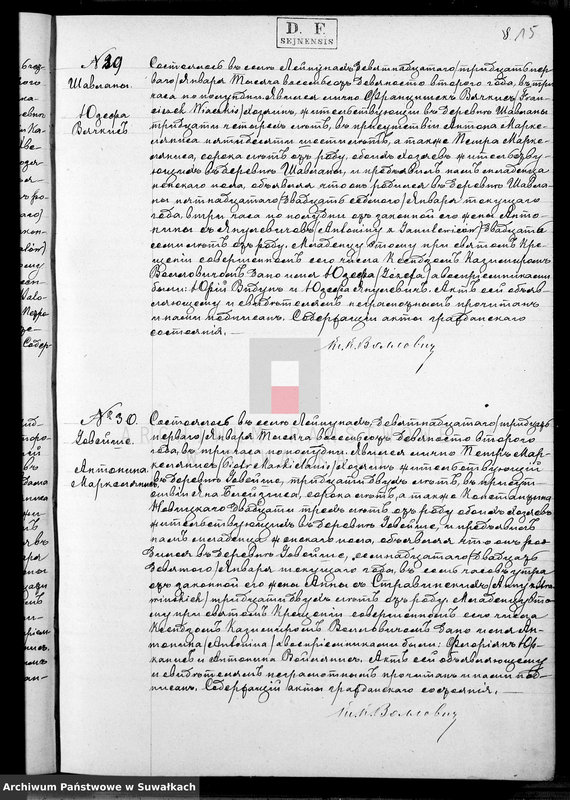 D. F.
SEJNENSIS
15
№ 29
Шавланы.
Юзефа
Вячкис
Состоялось въ селѣ Лейпунахъ, девятнадцатаго /тридцать пер-
ваго/ Января тысяча восемьсотъ девяносто втораго года, въ три
часа по полудни. Явился лично Францишекъ Вячкисъ /Fran-
ciszek Wiaczkis/ хозяинъ, жительствующій въ деревнѣ Шавланы
тридцати четырехъ лѣтъ, въ присутствіи Антона Марке-
пятидесяти шести лѣтъ, а также Петра Марке-
сорока лѣтъ отъ роду, обоихъ хозяевъ жительству-
ющихъ въ деревнѣ Шавланы, и предъявилъ намъ младенца
женскаго пола, объявляя что онъ родился въ деревнѣ Шавла-
ны пятнадцатаго /двадцать седьмаго/ Января текущаго
года, въ три часа по полудни отъ законной его жены Анто-
нины съ Янулевичовъ /Antoniny z Janulewiczów/ двадцати
семи лѣтъ отъ роду. Младенцу этому при святомъ Кре-
щеніи совершенномъ сего числа Ксендзомъ Казимиромъ
Волловичомъ дано имя Юзефа /Józefa/ а воспріемниками
были: Юрій и Юзефа Янулевичъ. Актъ сей объяв-
ляющему и свидѣтелямъ неграмотнымъ прочитанъ
и нами подписанъ. Содержащій акты гражданскаго
состоянія. —
К. К. Волловичъ
№ 30.
Говейше.
Антонина
Состоялось въ селѣ Лейпунахъ, девятнадцатаго /тридцать
перваго/ Января тысяча восемьсотъ девяносто втораго
года, въ три часа по полудни. Явился лично Петръ Мар-
/Piotr / хозяинъ жительствующій
въ деревнѣ Говейше, тридцати двухъ лѣтъ, въ присут-
ствіи Яна сорока лѣтъ, а также Константина
Новицкаго двадцати трехъ лѣтъ отъ роду обоихъ хозяевъ
жительствующихъ въ деревнѣ Говейше, и предъявилъ
намъ младенца женскаго пола, объявляя что онъ ро-
дился въ деревнѣ Говейше, семнадцатаго /двадцать
девятаго/ Января текущаго года, въ семь часовъ утра
отъ законной его жены Анны съ /Anny
/ тридцати двухъ лѣтъ отъ роду. Младенцу это-
му при святомъ Крещеніи совершенномъ сего числа
Ксендзомъ Казимиромъ Волловичомъ дано имя Ан-
тонина /Antonina/ а воспріемниками были: Флоріанъ Юр-
и Антонина Актъ сей объявляющему
и свидѣтелямъ неграмотнымъ прочитанъ и нами под-
писанъ. Содержащій акты гражданскаго состоянія. —
К. К. Волловичъ
Archiwum Państwowe w Suwałkach